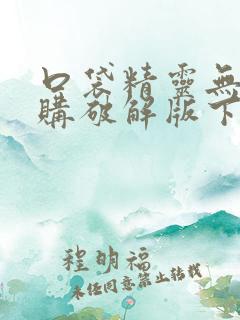 口袋精靈無
購破解版下
程明福
未经同意禁止转载